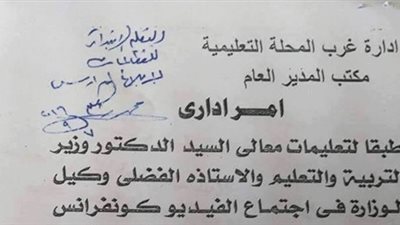 ادارة غرب المحلة التعليمية
مكتب المدير العام
امر ادارى
طبقا لتعليمات معالى السيد الدكتور وزير
التربية والتعليم والاستاذه الفضلى وكيل
الوزارة فى اجتماع الفيديو كونفرانس